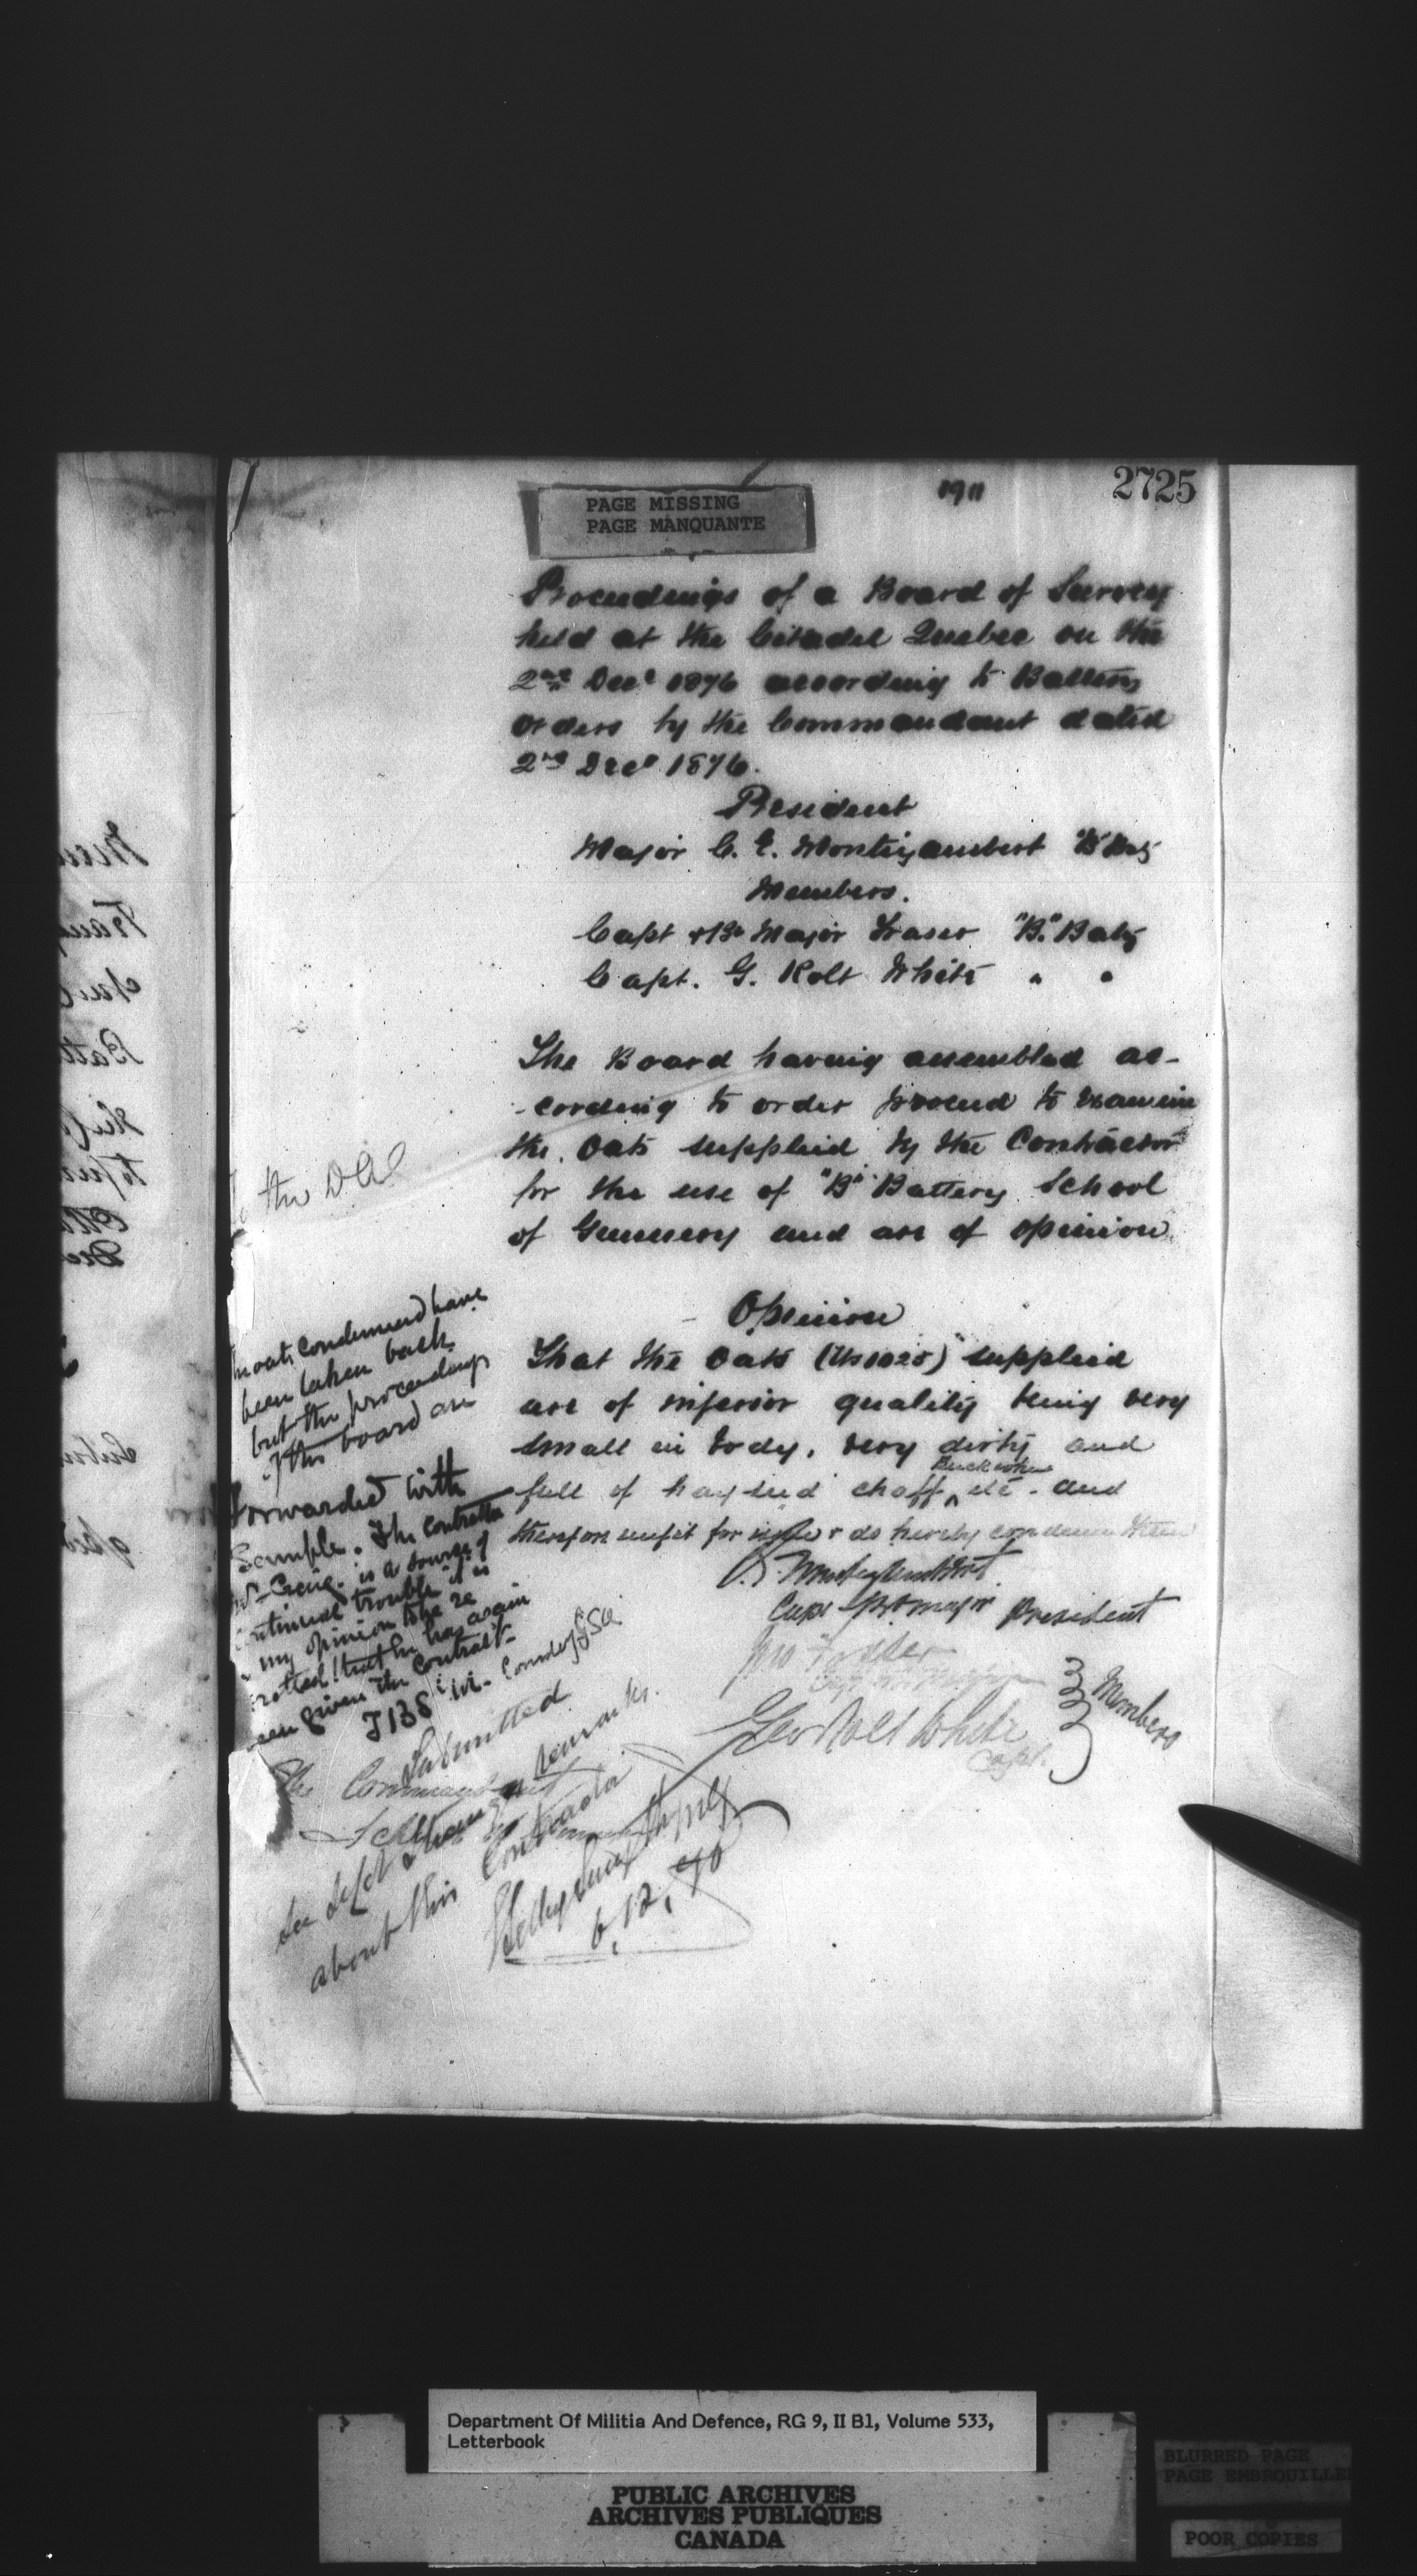 2725
PAGE MISSING
PAGE MANQUANTE
Proceedings of a Board of Survey
held at the Citadel Quebec on the
2nd Decr 1876 according to Battery
Orders by the Commandant dated
2nd Decr 1876.
President
Major C. E. Montizambert "B" Baty
Members.
Capt & Bt Major Fraser "B." Baty
Capt. G. Holt White " "
The Board having assembled ac-
-cording to order proceed to examine
the Oats supplied by the Contractor
for the use of "B" Battery School
of Gunnery and are of opinion
Opinion
That the Oats supplied
are of inferior quality being very
small in body, very dirty and
full of hay seed chaff etc - and
therefore unfit for do hereby condemn them
Montizambert
Capt Bt Major President
Geo Holt White
Capt.
Members
the DAG
oats condemned have
been taken back
but the proceedings
of this board are
forwarded with
Sample. The Contractor
Craig. is a source of
trouble it is
my opinion to be re
that he has again
been given the Contract
Submitted
The Commandant
remarks.
about this Contractor
6,12,76
Department Of Militia And Defence, RG 9, II B1, Volume 533,
Letterbook
PUBLIC ARCHIVES
ARCHIVES PUBLIQUES
CANADA
BLURRED PAGE
PAGE EMBROUILLE
POOR COPIES